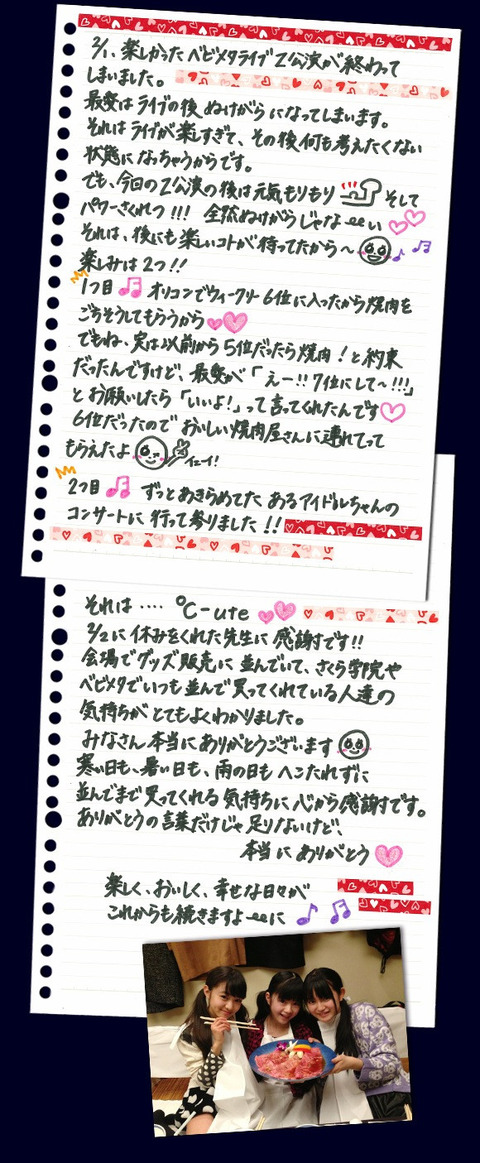 2/1、楽しかったベビメタライブ2公演が終わって
しまいました。
最愛はライブの後ぬけがらになってしまいます。
それはライブが楽しすぎて、その後何も考えたくない
状態になっちゃうからです。
でも、今日の2公演の後は元気もりもり そして
パワーさくれつ!!! 全然ぬけがらじゃなーい
それは、後にも楽しいコトが待ってたから〜
楽しみは2つ!!
1つ目 オリコンでウィークリー6位に入ったから焼肉を
ごちそうしてもらうから
でもね、実は以前から5位だったら焼肉!と約束
だったんですけど、最愛が「えー!!7位にして〜!!!」
とお願いしたら「いいよ!」って言ってくれたんです
6位だったのでおいしい焼肉屋さんに連れてって
もらえたよ イェーイ!
2つ目 ずっとあきらめてた あるアイドルちゃんの
コンサートに行って参りました!!
それは‥‥ ℃-ute
2/2に休みをくれた先生に感謝です!!
会場でグッズ販売に並んでいて、さくら学院や
ベビメタでいつも並んで買ってくれている人達の
気持ちがとてもよくわかりました。
みなさん本当にありがとうございます
寒い日も、暑い日も、雨の日もへこたれずに
並んでまで買ってくれる気持ちに心から感謝です。
ありがとうの言葉だけじゃ足りないけど、
本当にありがとう
楽しく、おいしく、幸せな日々が
これからも続きますよーに